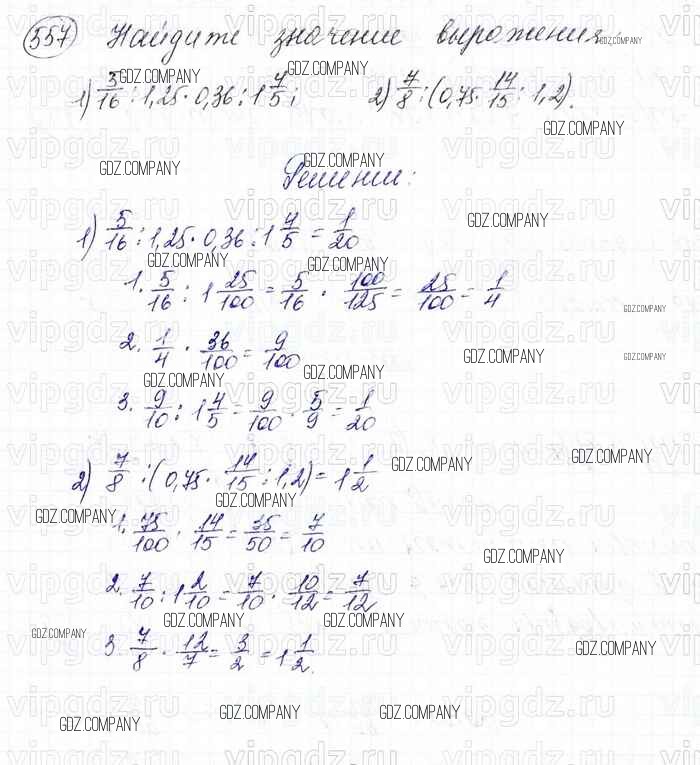 557 Найдите значение выражения.
1) 5/16 : 1,25 · 0,36 : 1 4/5; 2) 7/8 : (0,75 · 14/15 : 1,2).
Решение:
1) 5/16 : 1,25 · 0,36 : 1 4/5 = 1/20
1. 5/16 : 1 25/100 = 5/16 · 100/125 = 25/100 = 1/4
2. 1/4 · 36/100 = 9/100
3. 9/10 : 1 4/5 = 9/100 · 5/9 = 1/20
2) 7/8 : (0,75 · 14/15 : 1,2) = 1 1/2
1. 75/100 · 14/15 = 35/50 = 7/10
2. 7/10 : 1 2/10 = 7/10 · 10/12 = 7/12
3. 7/8 · 12/7 = 3/2 = 1 1/2.